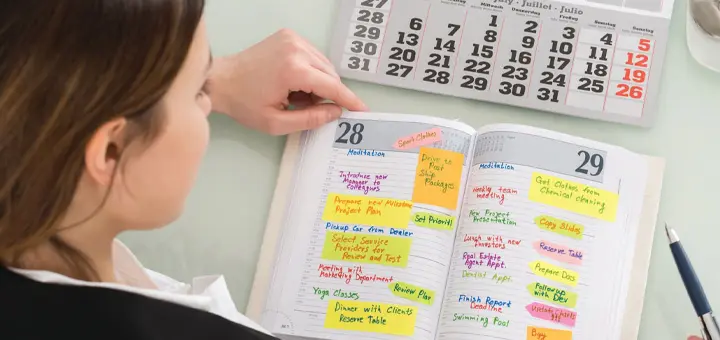 Juillet · Julio
Mittwoch
Donnerstag
Freitag
Samstag
Sonntag
27
28 6 7 1 2 3 4 5
29 13 14 8 9 10 11 12
30 20 21 15 16 17 18 19
31 27 28 22 23 24 25 26
29 30 31
28
Sport Clothes
Meditation
Drive to
Post
Ship
Packages
Introduce new
Manager to
colleagues
Prepare new Milestone
Project Plan
Set Prioriti
Pickup Car from Dealer
Select Service
Providers for
Review and Test
Meeting with
Marketing Department
Yoga Classes
Review Plan
Dinner with Clients
Reserve Table
29
Meditation
Get Clothes from
Chemical cleaning
Weekly team
meeting
New Project
Presentation
Copy Slides
Lunch with new
investors
Reserve Table
Real Estate
Agent Appt.
Prepare Docs
Dentist Appt.
Followup
with Dev
Finish Report
Deadline
Update Charts
Swimming Pool
Buy